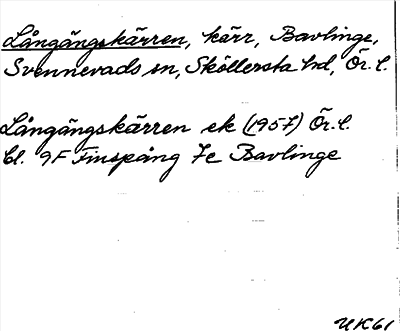 Långängskärren, kärr, Bavlinge,
Svennevads sn, Sköllersta hd, Ör. l.
Långängskärren ek (1957) Ör. l.
bl. 9F Finspång 7c Bavlinge
UK61